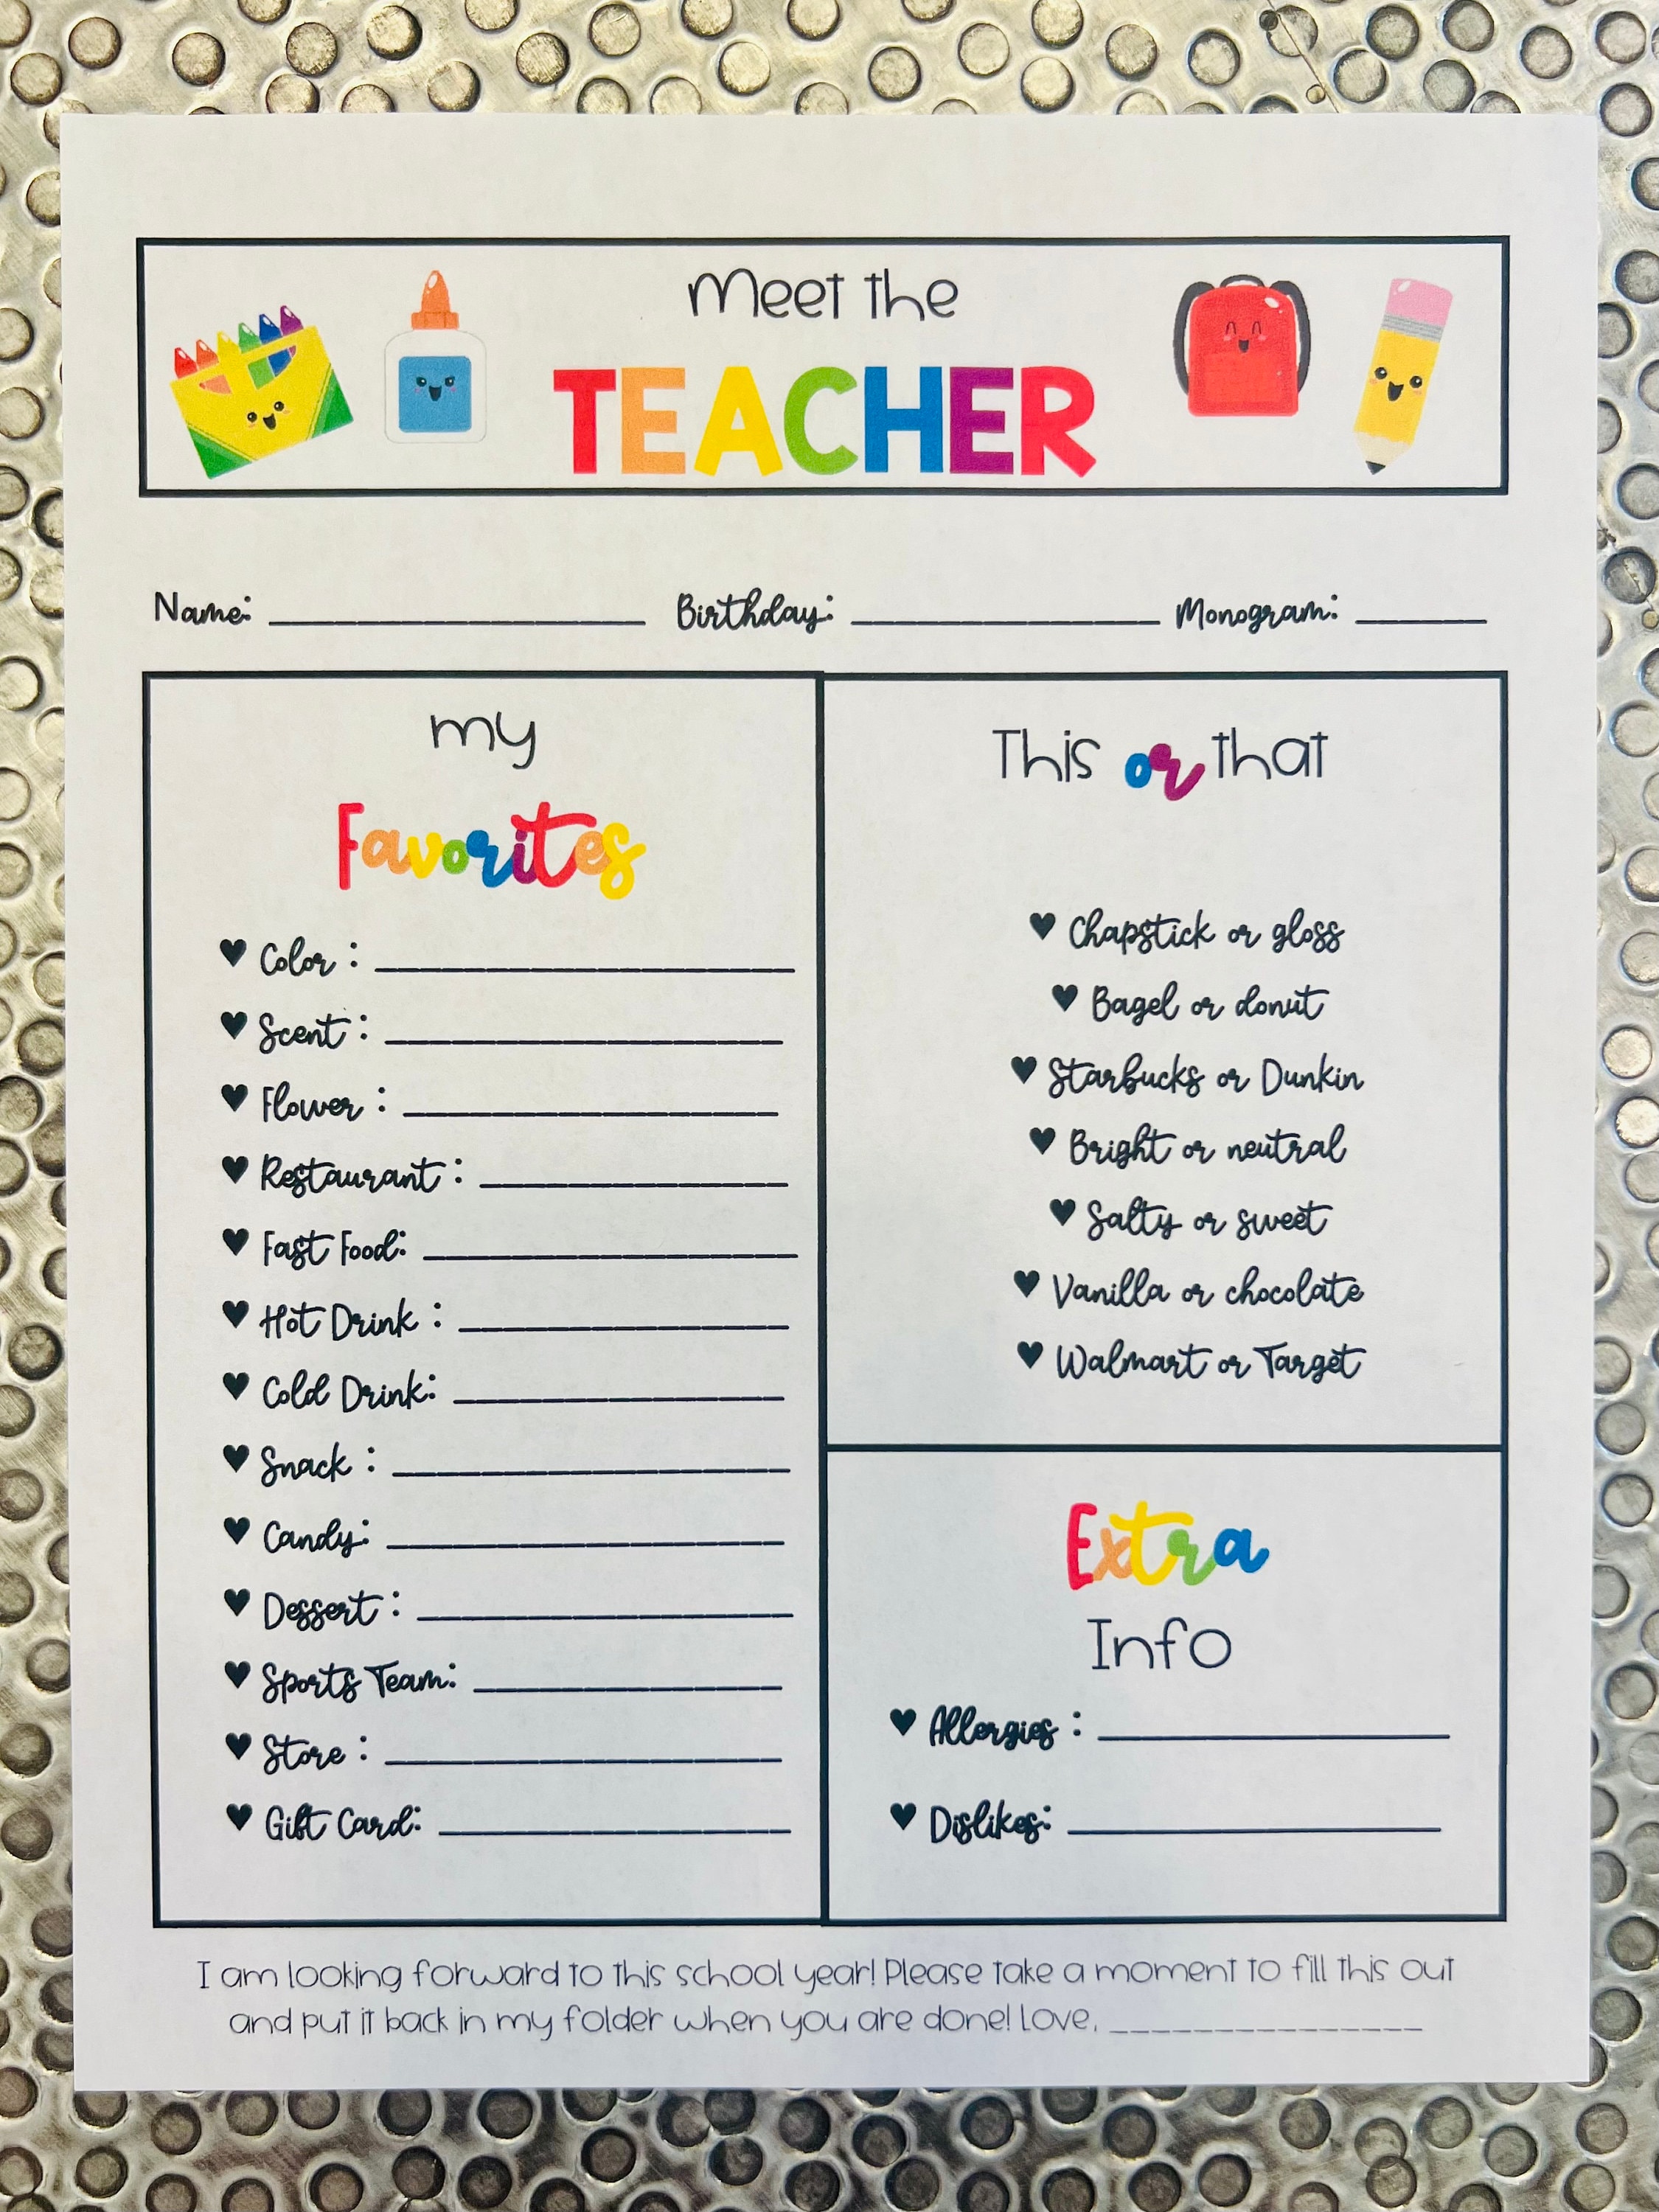 Meet the
TEACHER
Name: ______________ Birthday: ____________ Monogram: _____
my
Favorites
♥ Color : ________________
♥ Scent : ________________
♥ Flower : ______________
♥ Restaurant : ____________
♥ Fast Food: ______________
♥ Hot Drink : ____________
♥ Cold Drink: ____________
♥ Snack : ________________
♥ Candy: ________________
♥ Dessert : ______________
♥ Sports Team: ____________
♥ Store : ________________
♥ Gift Card: ______________
This or that
♥ Chapstick or gloss
♥ Bagel or donut
♥ Starbucks or Dunkin
♥ Bright or neutral
♥ Salty or sweet
♥ Vanilla or chocolate
♥ Walmart or Target
Extra
Info
♥ Allergies : ______________
♥ Dislikes: ______________
I am looking forward to this school year! Please take a moment to fill this out
and put it back in my folder when you are done! Love, _______________